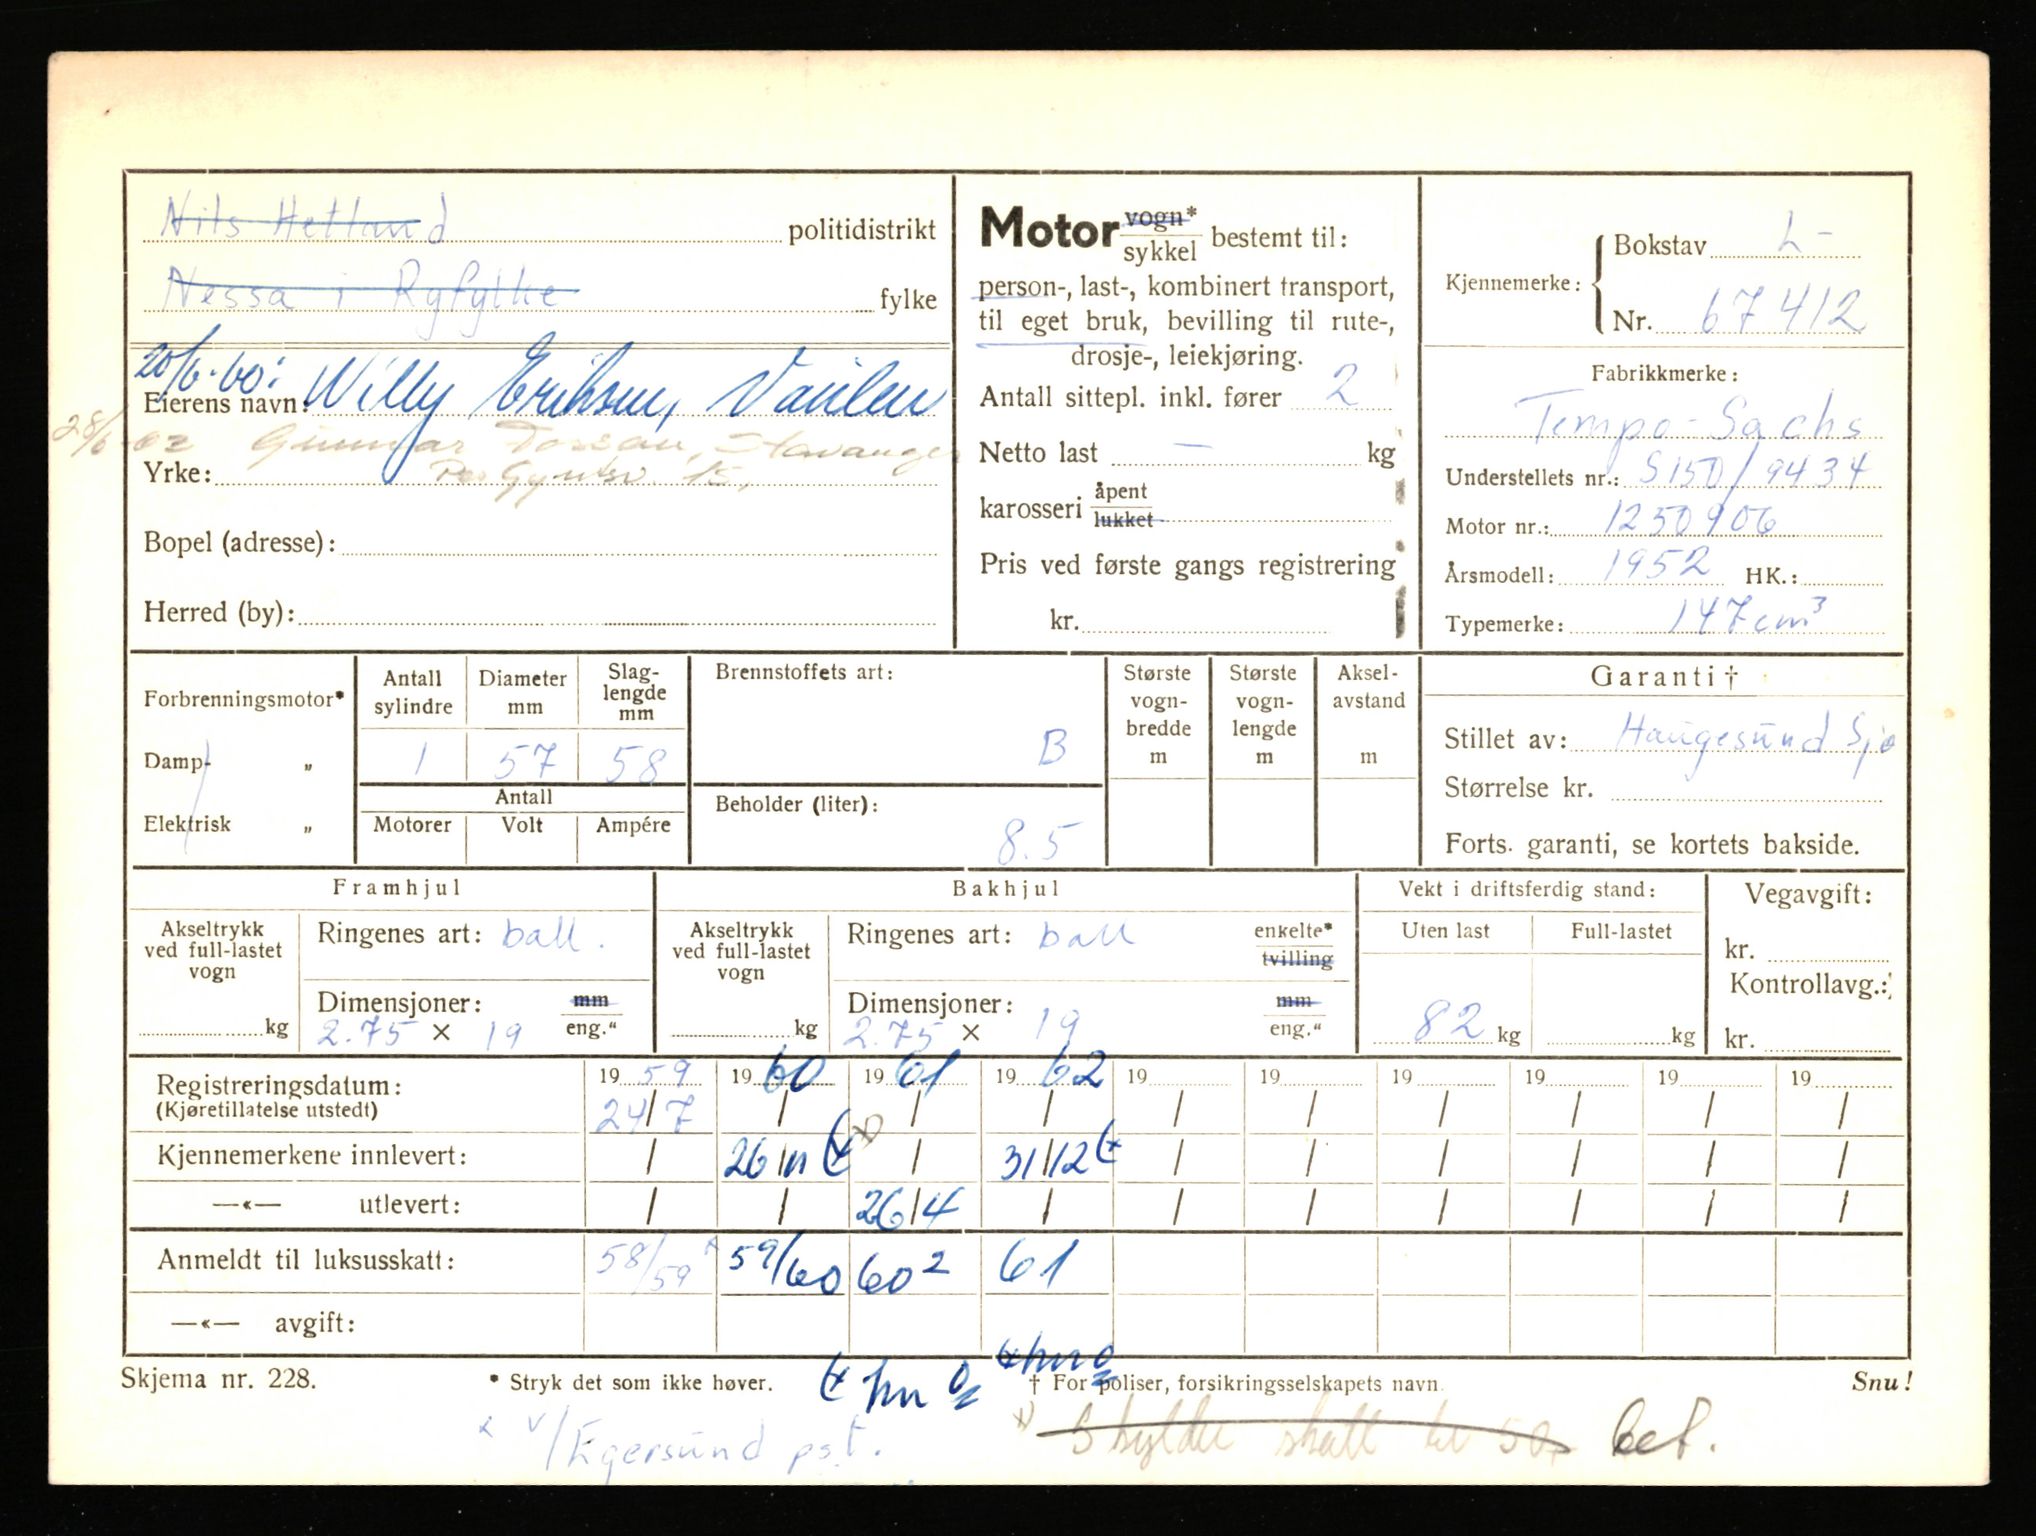 Nils Hetland politidistrikt
Nessa i Ryfylke fylke
20/6-60: Willy Eriksen, Vaulen
Eierens navn:
28/6-62 Gunnar Torsen, Stavanger
Yrke: Per Gyntsv. 15,
Bopel (adresse):
Herred (by):
Motor vogn* / sykkel bestemt til:
person-, last-, kombinert transport,
til eget bruk, bevilling til rute-,
drosje-, leiekjøring.
Antall sittepl. inkl. fører 2
Netto last — kg
karosseri åpent / lukket
Pris ved første gangs registrering
kr.
Kjennemerke: Bokstav L-
Nr. 67412
Fabrikkmerke:
Tempo-Sachs
Understellets nr.: S150/9434
Motor nr.: 1250906
Årsmodell: 1952 HK.:
Typemerke: 147cm³
Forbrenningsmotor*
Damp- „
Elektrisk „
Antall sylindre 1
Diameter mm 57
Slag-lengde mm 58
Antall
Motorer Volt Ampére
Brennstoffets art: B
Beholder (liter): 8.5
Største vogn-bredde m
Største vogn-lengde m
Aksel-avstand m
Garanti †
Stillet av: Haugesund Sjø
Størrelse kr.
Forts. garanti, se kortets bakside.
Framhjul
Akseltrykk ved full-lastet vogn kg
Ringenes art: ball.
Dimensjoner: mm / eng."
2.75 × 19
Bakhjul
Akseltrykk ved full-lastet vogn kg
Ringenes art: ball enkelte* / tvilling
Dimensjoner: mm / eng."
2.75 × 19
Vekt i driftsferdig stand:
Uten last Full-lastet
82 kg kg
Vegavgift:
kr.
Kontrollavg.:
kr.
Registreringsdatum: 1959 1960 1961 1962 19 19 19 19 19 19
(Kjøretillatelse utstedt) 24/7 / / / / / / / / /
Kjennemerkene innlevert: / 26/11 / 31/12 / / / / / /
—«— utlevert: / / 26/4 / / / / / / /
Anmeldt til luksusskatt: 58/59 59/60 60² 61
—«— avgift:
Skjema nr. 228.
* Stryk det som ikke høver.
† For poliser, forsikringsselskapets navn.
Snu!
x v/Egersund pst.
x) Skylder skatt kr 50,- bet.